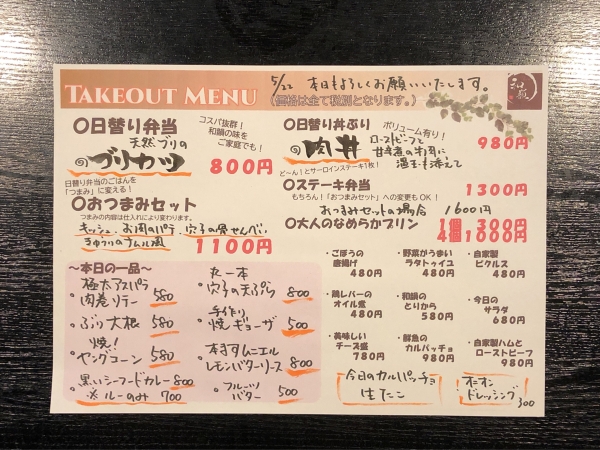 TAKEOUT MENU
5/22 本日もよろしくお願いいたします。
(価格は全て税別となります。)
和韻
〇日替り弁当
コスパ抜群!
和韻の味を
ご家庭でも!
天然ブリの
のブリカツ
800円
日替り弁当のごはんを
「つまみ」に変える!
〇おつまみセット
つまみの内容は仕入れにより変わります。
キッシュ、お肉のパテ、穴子の骨せんべい
きゅうりのナムル風
1100円
〇日替り丼ぶり
ボリューム有り!
980円
の肉丼
ローストビーフと
甘辛煮の牛肉に
温玉も添えて
ど〜ん!とサーロインステーキ1枚!
〇ステーキ弁当
1300円
もちろん!「おつまみセット」への変更もOK!
おつまみセットの場合 1600円
〇大人のなめらかプリン
1個 300円
4個1000円
〜本日の一品〜
極太アスパラ
肉巻リテー 580
・ぶり大根 580
・焼!
ヤングコーン 580
・黒いシーフードカレー 800
※ルーのみ 700
丸一本
・穴子の天ぷら 800
手作り
・焼ギョーザ 500
・本村すムニエル
レモンバターソース 800
・フルーツ
バター 500
・ごぼうの
唐揚げ
480円
・野菜がうまい
ラタトゥイユ
480円
・自家製
ピクルス
480円
・鶏レバーの
オイル煮
480円
・和韻の
とりから
580円
・今日の
サラダ
680円
・美味しい
チーズ盛
780円
・鮮魚の
カルパッチョ
980円
・自家製ハムと
ローストビーフ
980円
今日のカルパッチョ
生たこ
オニオン
ドレッシング
300